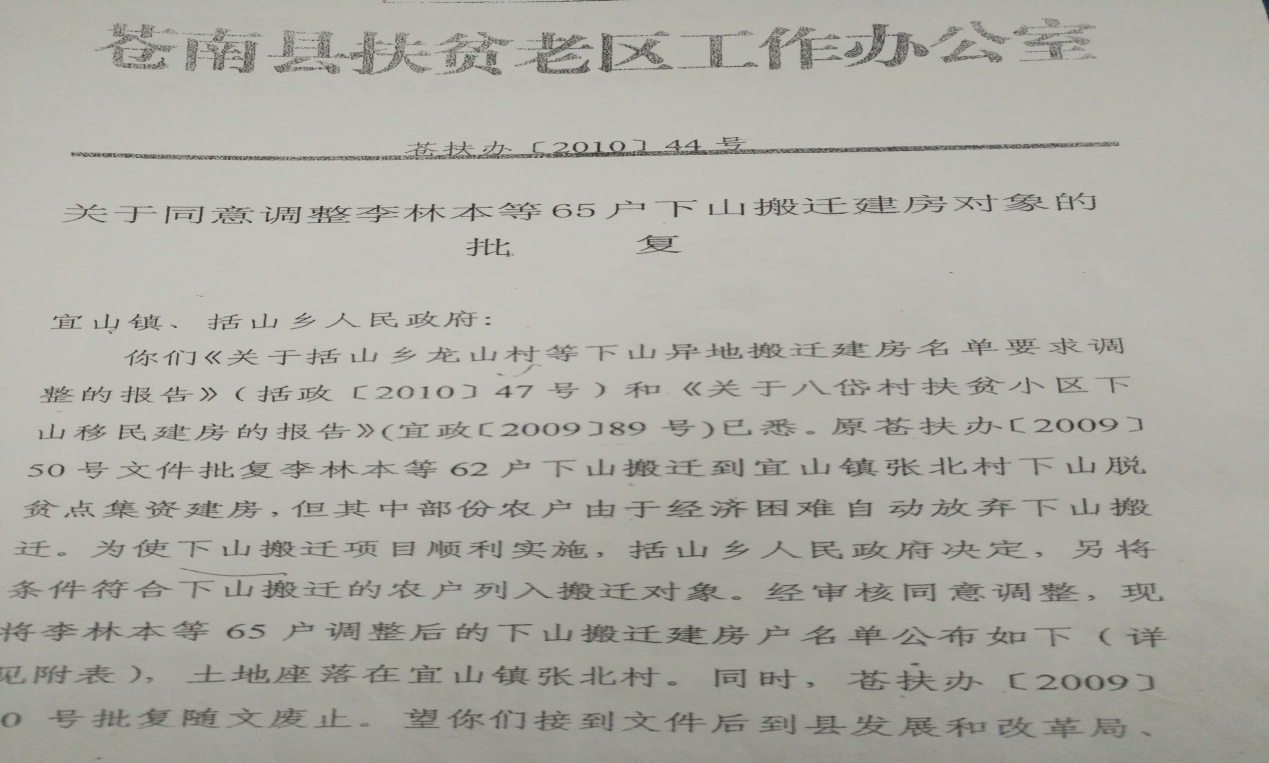 苍南县扶贫老区工作办公室
苍扶办〔2010〕44 号
关于同意调整李林本等65户下山搬迁建房对象的
批 复
宜山镇、括山乡人民政府：
你们《关于括山乡龙山村等下山异地搬迁建房名单要求调
整的报告》（括政〔2010〕47 号）和《关于八岱村扶贫小区下
山移民建房的报告》(宜政〔2009〕89 号)已悉。原苍扶办〔2009〕
50 号文件批复李林本等 62 户下山搬迁到宜山镇张北村下山脱
贫点集资建房，但其中部份农户由于经济困难自动放弃下山搬
迁。为使下山搬迁项目顺利实施，括山乡人民政府决定，另将
条件符合下山搬迁的农户列入搬迁对象。经审核同意调整，现
将李林本等 65 户调整后的下山搬迁建房户名单公布如下（详
见附表），土地座落在宜山镇张北村。同时，苍扶办〔2009〕
0 号批复随文废止。望你们接到文件后到县发展和改革局、